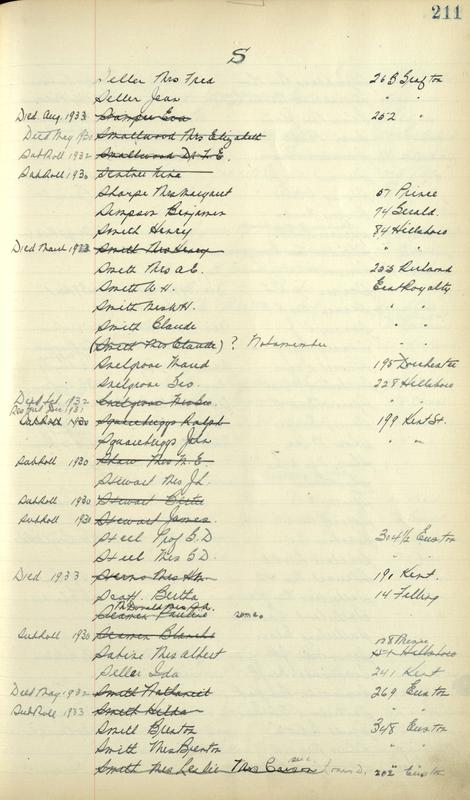 211
S
Seller Mrs Fred 263 Grafton
Seller Jean " "
Died Aug. 1933 Eva 252 "
Died May Smallwood Mrs Elizabeth
Sub Roll 1932 Smallwood Dr. F. E.
Sub Roll 1930
Sharpe Mrs Margaret 67 Prince
Simpson Benjamin 74 Gerald.
Smith Henry 84 Hillsboro
Died March 1933 Smith Mrs Henry " "
Smith Mrs A.E. 233 Richmond
Smith W H. East Royalty
Smith Mrs W.H. " "
Smith Claude " "
(Smith Mrs Claude) ? Not a member " "
Snelgrove Maud 195 Dorchester
Snelgrove Geo. 228 Hillsboro
Died 1932 Snelgrove Mrs Geo. "
Sub Roll 1930 Squarebriggs Ralph 199 Kent St.
Squarebriggs John " "
Sub Roll 1930 Shaw Mrs N. E.
Stewart Mrs J.
Sub Roll 1930 Stewart
Sub Roll 1931 Stewart James.
Steel Prof S. D 304½ Euston
Steel Mrs S D. " "
Died 1933. Mrs 191 Kent.
Scott. Bertha 14
McDonald Mrs
Seaman Pauline
Sub Roll 1930 Seaman Blanche
Sabine Mrs Albert Hillsboro
Seller Ida 241 Kent
Died May 1932 Smith Nathaniel 269 Euston
Sub Roll 1933 Smith Hilda " "
Smith Brenton 348 Euston
Smith Mrs Brenton " "
Smith Mrs Leslie Mrs 202 Euston